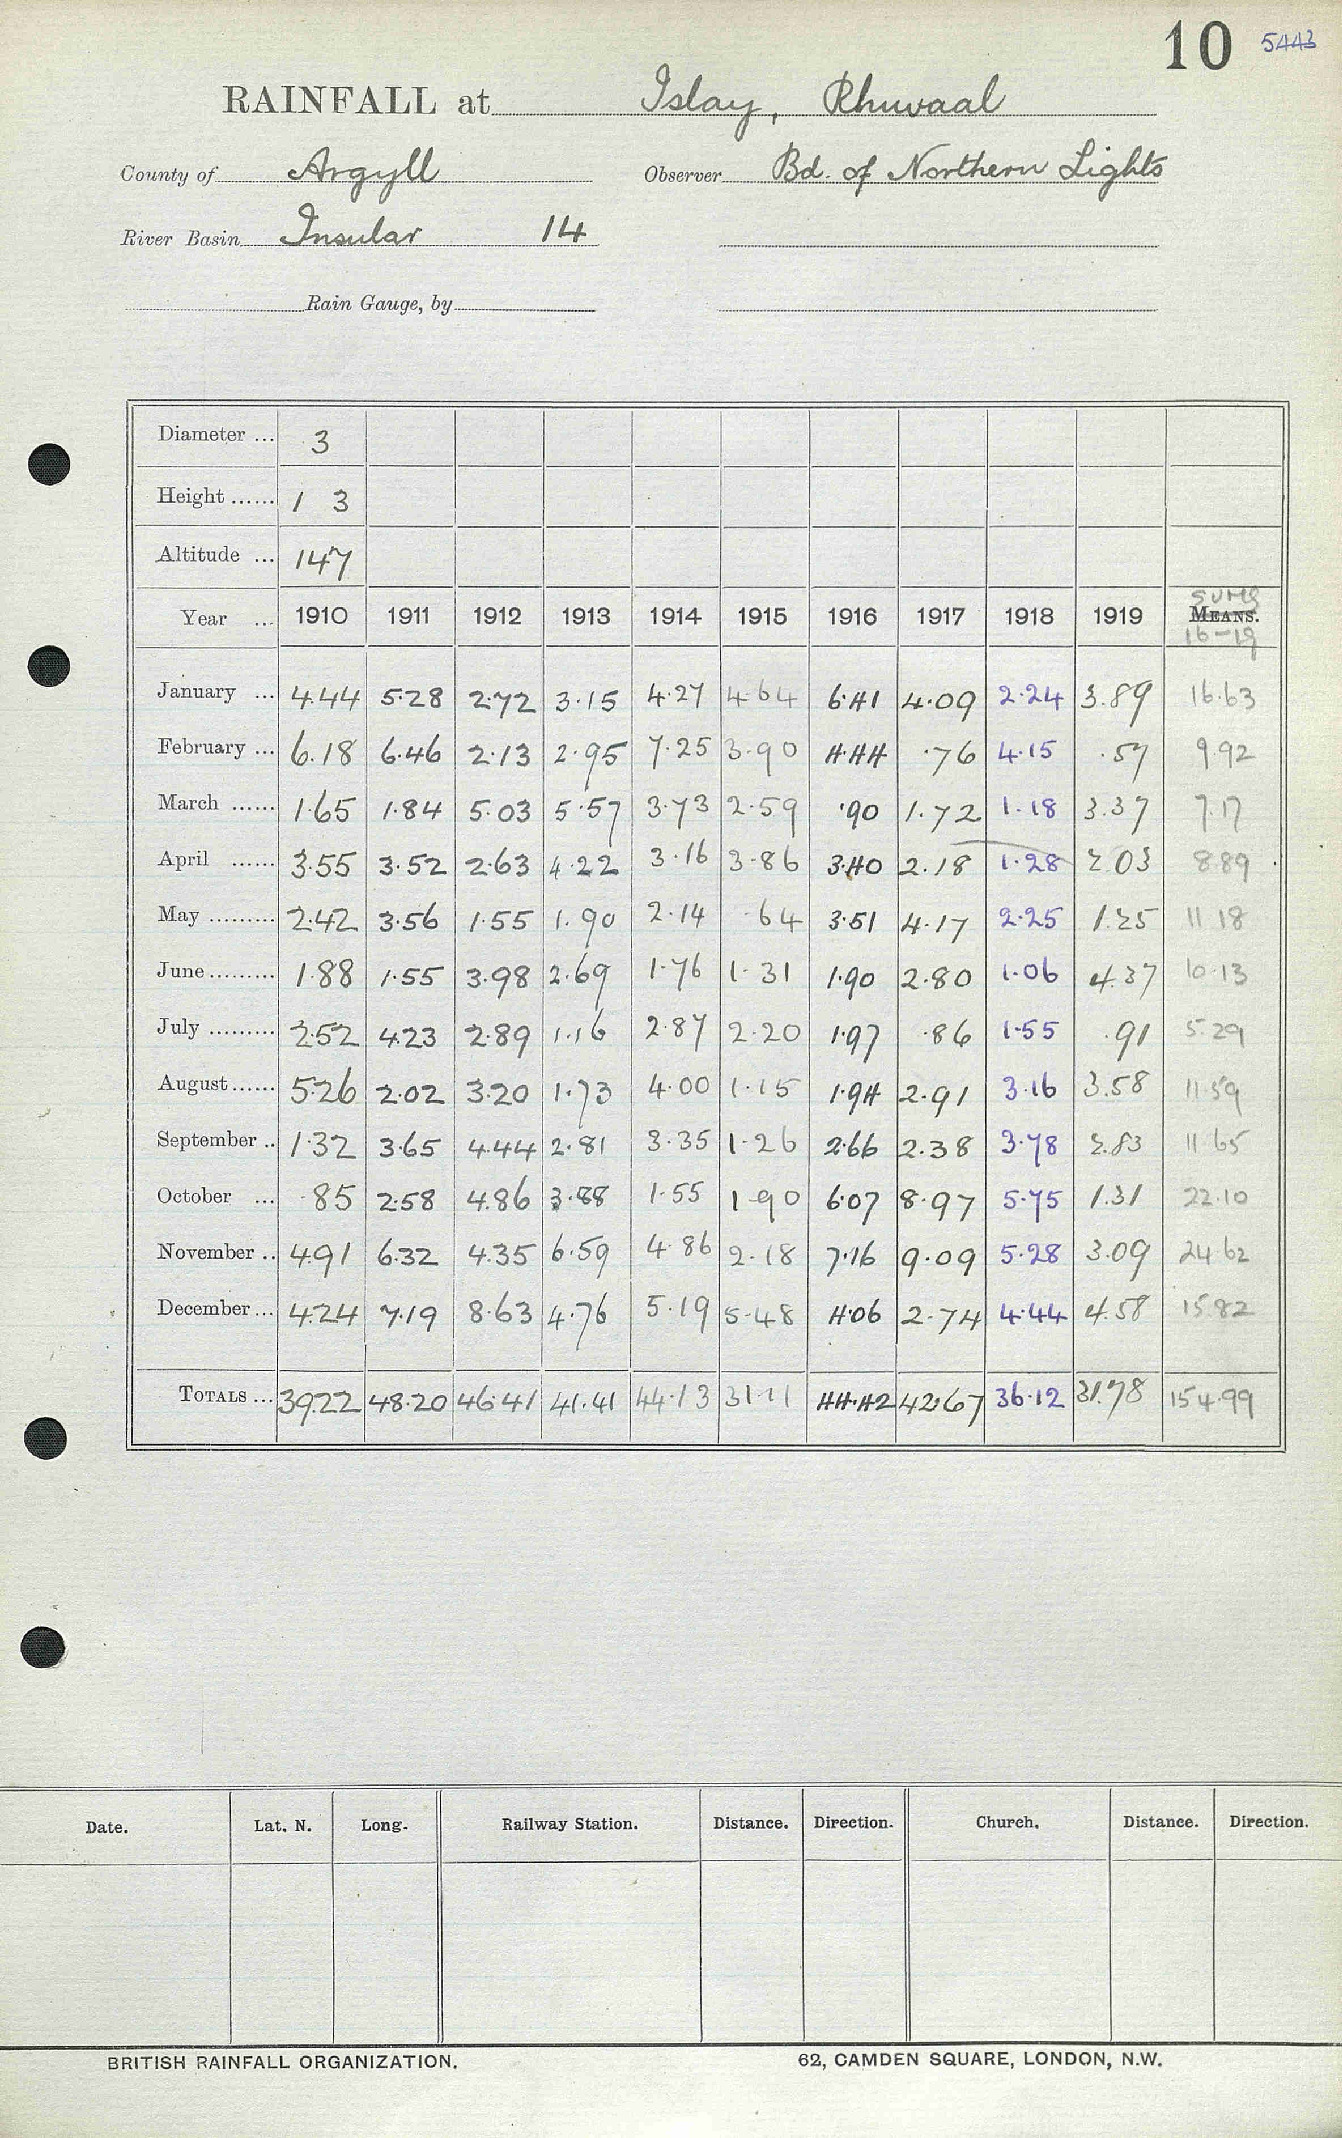 10 5443
RAINFALL at Islay, Rhuvaal
County of Argyll Observer Bd. of Northern Lights
River Basin Insular 14
Rain Gauge, by
Diameter ... 3
Height ...... 1 3
Altitude ... 147
Year ... 1910 1911 1912 1913 1914 1915 1916 1917 1918 1919 SUMS MEANS. 16-19
January ... 4.44 5.28 2.72 3.15 4.27 4.64 6.41 4.09 2.24 3.89 16.63
February ... 6.18 6.46 2.13 2.95 7.25 3.90 4.44 .76 4.15 .57 9.92
March ...... 1.65 1.84 5.03 5.57 3.73 2.59 .90 1.72 1.18 3.37 7.17
April ...... 3.55 3.52 2.63 4.22 3.16 3.86 3.40 2.18 1.28 2.03 8.89
May ......... 2.42 3.56 1.55 1.90 2.14 .64 3.51 4.17 2.25 1.25 11.18
June ......... 1.88 1.55 3.98 2.69 1.76 1.31 1.90 2.80 1.06 4.37 10.13
July ......... 2.52 4.23 2.89 1.16 2.87 2.20 1.97 .86 1.55 .91 5.29
August ...... 5.26 2.02 3.20 1.73 4.00 1.15 1.94 2.91 3.16 3.58 11.59
September .. 1.32 3.65 4.44 2.81 3.35 1.26 2.66 2.38 3.78 2.83 11.65
October ... .85 2.58 4.86 3.88 1.55 1.90 6.07 8.97 5.75 1.31 22.10
November .. 4.91 6.32 4.35 6.59 4.86 2.18 7.16 9.09 5.28 3.09 24.62
December ... 4.24 7.19 8.63 4.76 5.19 5.48 4.06 2.74 4.44 4.58 15.82
TOTALS ... 39.22 48.20 46.41 41.41 44.13 31.11 44.42 42.67 36.12 31.78 154.99
Date. Lat. N. Long. Railway Station. Distance. Direction. Church. Distance. Direction.
BRITISH RAINFALL ORGANIZATION. 62, CAMDEN SQUARE, LONDON, N.W.